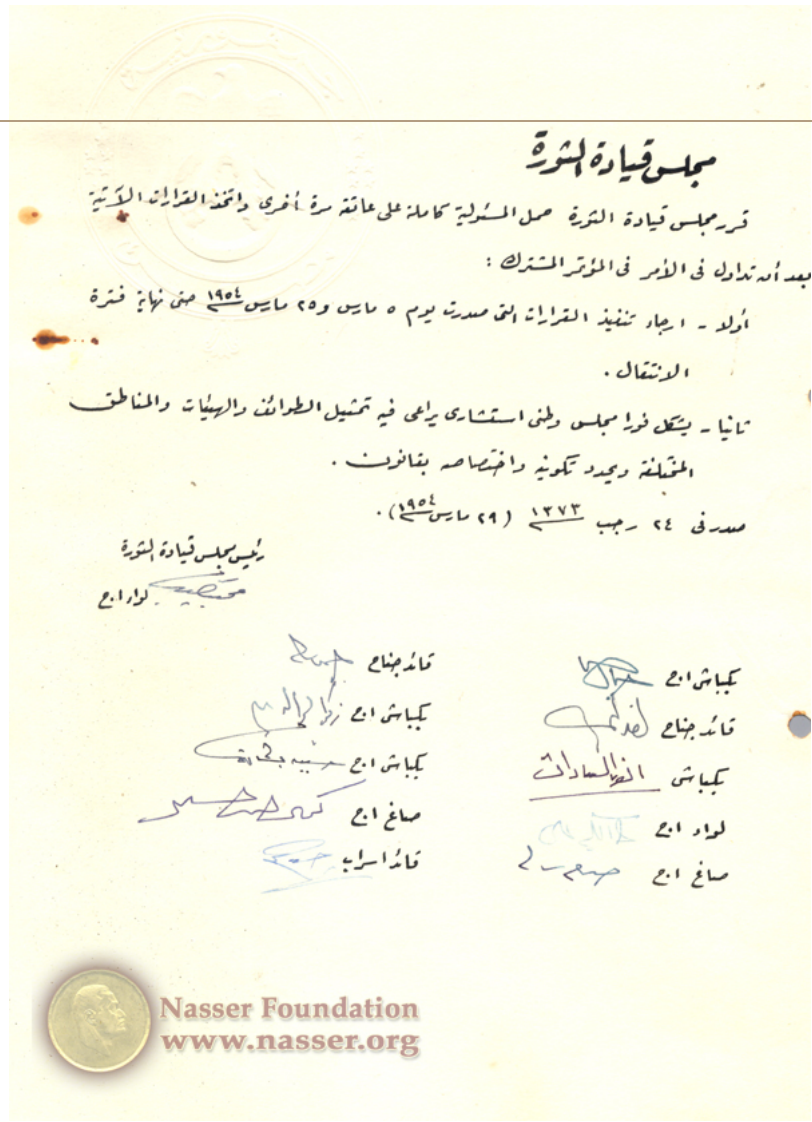 مجلس قيادة الثورة
قرر مجلس قيادة الثورة حمل المسئولية كاملة على عاتقه مرة أخرى واتخذ القرارات الآتية
بعد أن تداول فى الأمر فى المؤتمر المشترك :
أولا - ارجاء تنفيذ القرارات التى صدرت يوم ٥ مارس و ٢٥ مارس ١٩٥٤ حتى نهاية فترة
الانتقال .
ثانيا - يشكل فورا مجلس وطنى استشارى يراعى فيه تمثيل الطوائف والهيئات والمناطق
المختلفة ويحدد تكوينه واختصاصه بقانون .
صدر فى ٢٤ رجب ١٣٧٣ (٢٩ مارس ١٩٥٤) .
رئيس مجلس قيادة الثورة
لواء ا.ح
بكباشى ا.ح
قائد جناح
بكباشى انور السادات
لواء ا.ح
صاغ ا.ح
قائد جناح
بكباشى ا.ح زكريا محيى الدين
بكباشى ا.ح
صاغ ا.ح كمال الدين حسين
قائد اسراب
Nasser Foundation
www.nasser.org